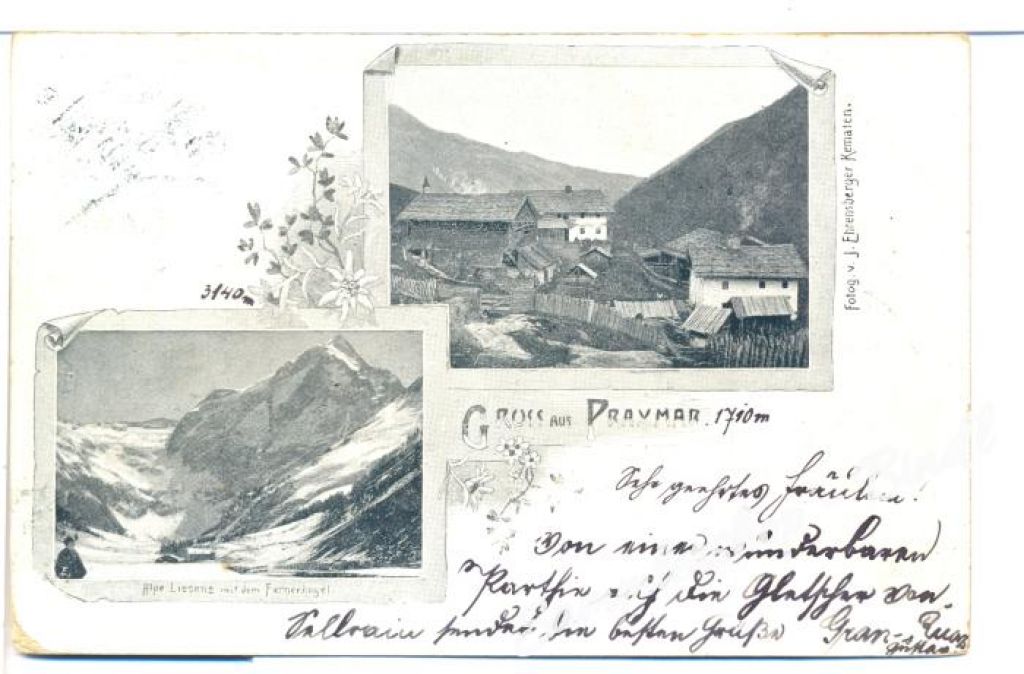 Fotog. v. J. Ehrensberger Kematen.
3140m
Gruss aus Praxmar. 1710m
Alpe Lissens mit dem Fernerkogel
Sehr geehrtes Fräulein!
Von einer wunderbaren
Parthie auf die Gletscher von
Sellrain sendet die besten Grüße